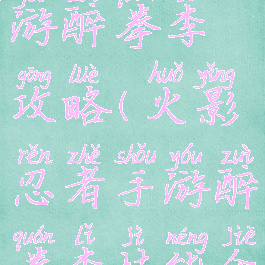 游醉拳李
gōng lüè huǒ yǐng
攻略(火影
rěn zhě shǒu yóu zuì
忍者手游醉
quán lǐ jì néng jiè